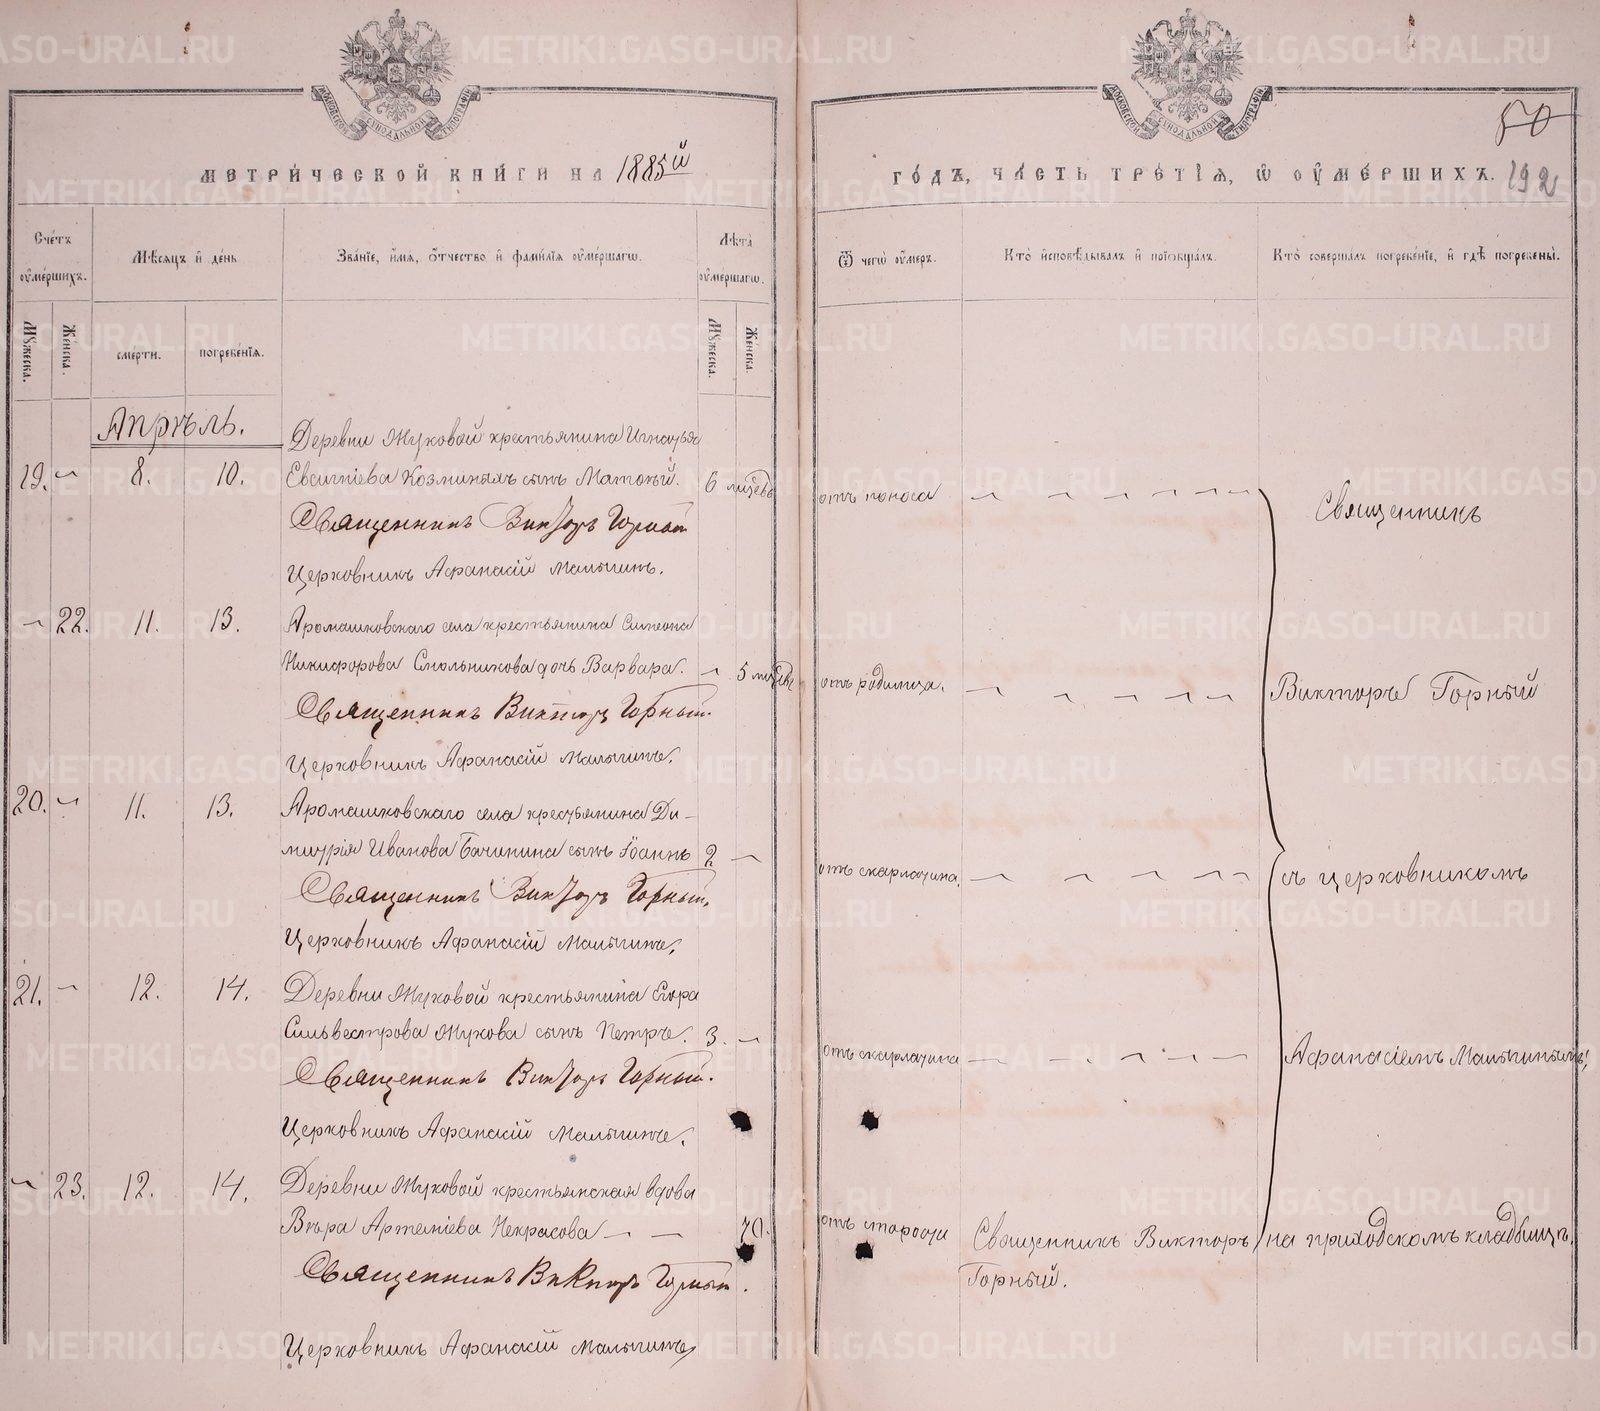 МЕТРИЧЕСКОЙ КНИГИ НА 1885й
Счетъ оумершихъ.
Мѣсяцъ и день
Званіе, имя, отчество и фамилія оумершагω.
Лѣта оумершагω.
Мꙋжеска.
Женска.
смерти.
погребенія.
Мꙋжеска.
Женска.
Апрѣль.
19. 8. 10.
Деревни Жуковой крестьянина Игнатья
Евсигніева Козминыхъ сынъ 6 мцевъ
Священникъ Викторъ Горный
Церковникъ Афанасій Малыгинъ.
22. 11. 13.
Аромашковскаго села крестьянина Симеона
Никифорова Смольникова дочь Варвара. 5 мцевъ
Священникъ Викторъ Горный.
Церковникъ Афанасій Малыгинъ.
20. 11. 13.
Аромашковскаго села крестьянина Ди-
митрія Иванова Бачинина сынъ Іоаннъ 2
Священникъ Викторъ Горный.
Церковникъ Афанасій Малыгинъ.
21. 12. 14.
Деревни Жуковой крестьянина Егора
Сильвестрова Жукова сынъ Петръ. 3.
Священникъ Викторъ Горный.
Церковникъ Афанасій Малыгинъ.
23. 12. 14.
Деревни Жуковой крестьянская вдова
Вѣра Артеміева Некрасова 70.
Священникъ Викторъ Горный.
Церковникъ Афанасій Малыгинъ
50
ГОДЪ, ЧАСТЬ ТРЕТІЯ, Ѡ ОУМЕРШИХЪ. 192
Ѿ чегω оумеръ.
Кто исповѣдывалъ и пріобщалъ.
Кто совершалъ погребеніе, и гдѣ погребены.
отъ поноса
Священникъ
отъ родимца.
Викторъ Горный
отъ скарлатина.
съ церковникомъ
отъ скарлатина
Афанасіемъ Малыгинымъ
отъ старости
Священникъ Викторъ
Горный.
на приходскомъ кладбищѣ.
METRIKI.GASO-URAL.RU